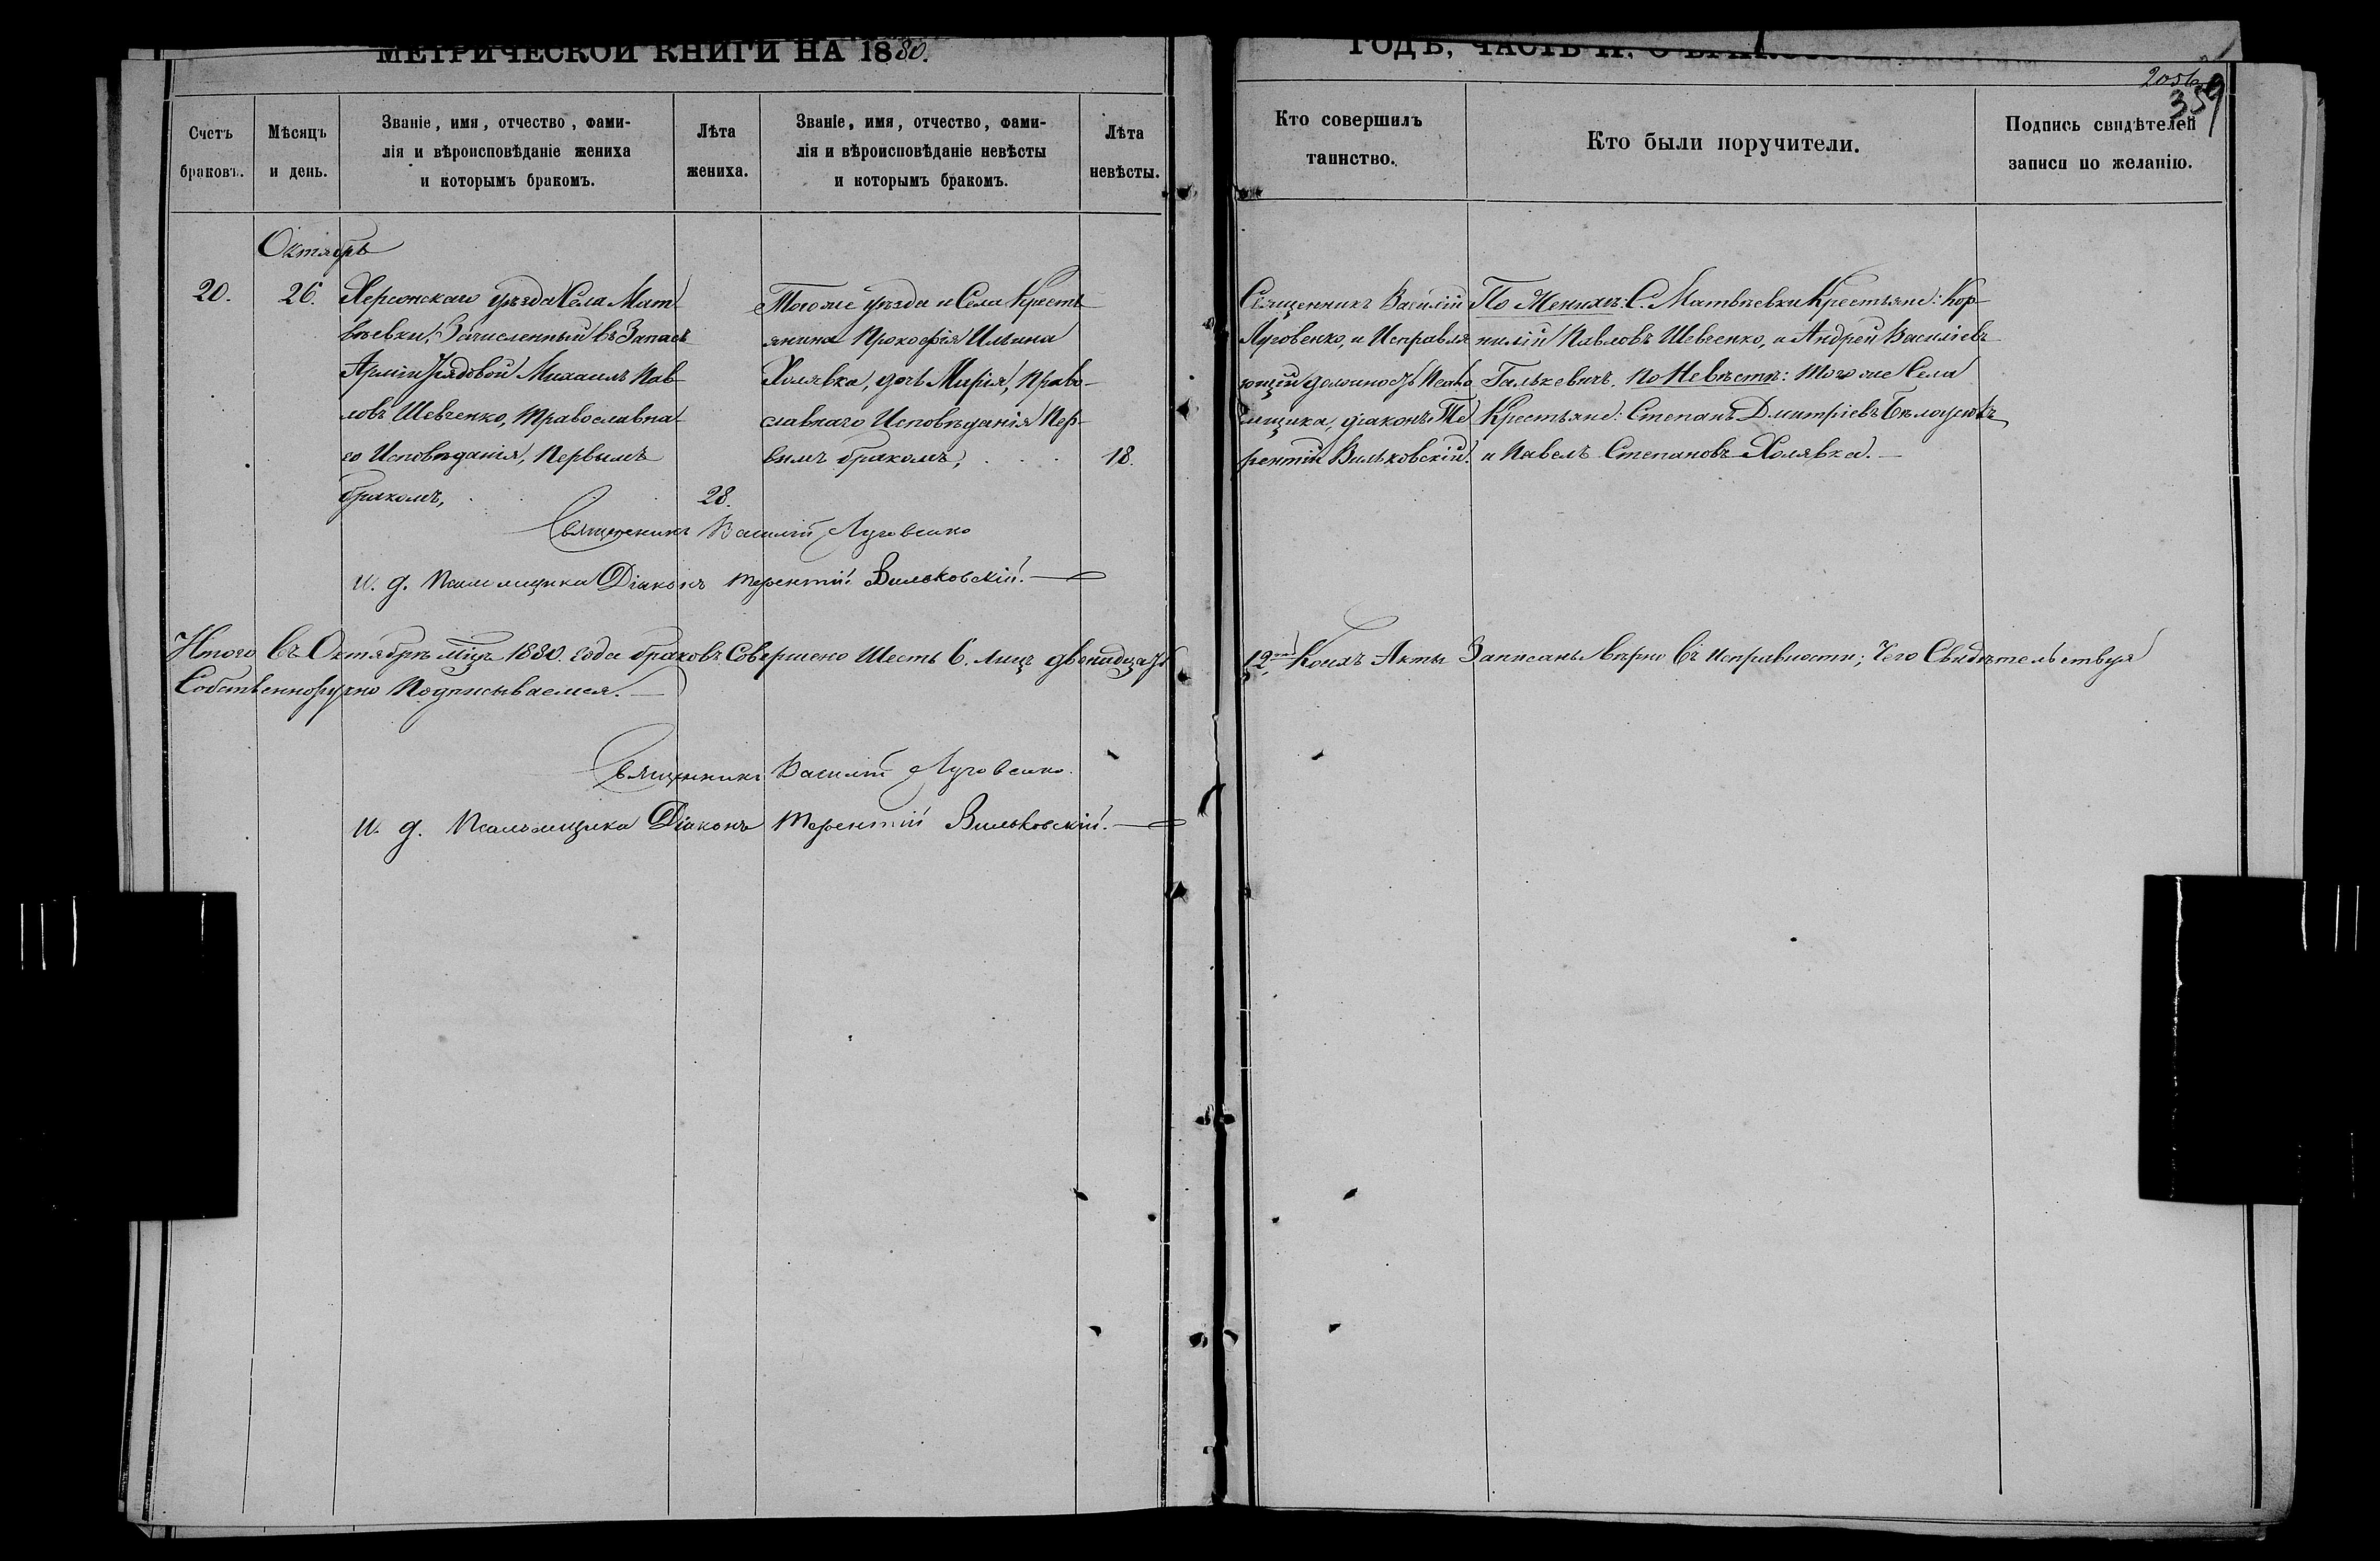 МЕТРИЧЕСКОЙ КНИГИ НА 1880.
Счетъ браковъ.
Мѣсяцъ и день.
Званіе, имя, отчество, фами-
лія и вѣроисповѣданіе жениха
и которымъ бракомъ.
Лѣта жениха.
Званіе, имя, отчество, фами-
лія и вѣроисповѣданіе невѣсты
и которымъ бракомъ.
Лѣта невѣсты.
Октябрь
20.
26.
Херсонскаго уѣзда Села Мат-
вѣевки, Зачисленный въ Запасъ
Арміи Рядовой Михаилъ Пав-
ловъ Шевченко, Православна-
го Исповѣданія, Первымъ
бракомъ,
28.
Тогоже уѣзда и Села Кресть-
янина Прокофія Ильина
Холявка, дочь Марія, Право-
славнаго Исповѣданія Пер-
вымъ бракомъ,
18.
Священникъ Василій Луговенко
и. д. Псаломщика Діаконъ Терентій Вильковскій.
Итого въ Октябрѣ мцѣ 1880. года браковъ Совершено Шесть 6. лицъ двѣнадцать
Собственноручно Подписываемся.
Священникъ Василій Луговенко.
и. д. Псаломщика Діаконъ Терентій Вильковскій.
ГОДЪ, ЧАСТЬ II. О
2056
359
Кто совершилъ
таинство.
Кто были поручители.
Подпись свидѣтелей
записи по желанію.
Священникъ Василій
Луговенко, и Исправля
ющій должность Псало
мщика, діаконъ Те
рентій Вильковскій.
По Женихѣ: С. Матвѣевки Крестьяне: Кор-
нилій Павловъ Шевченко, и Андрей Василіевъ
Галькевичъ. По Невѣстѣ: Того же Села
Крестьяне: Степанъ Дмитріевъ Бѣлоусовъ
и Павелъ Степановъ Холявка.
12 Коихъ Акты Записаны вѣрно въ исправности; Чего Свидѣтельствуя